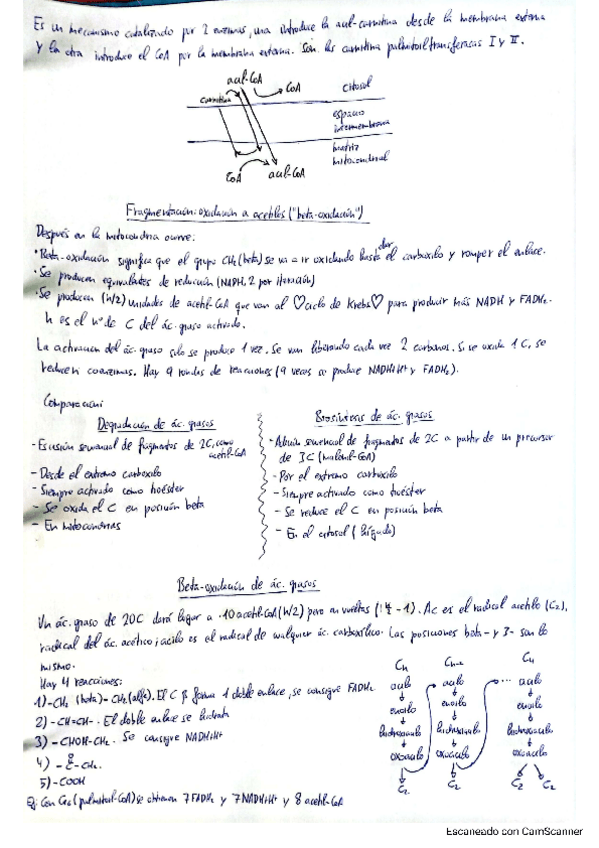 Es un mecanismo catalizado por 2 enzimas, una introduce la acil-carnitina desde la membrana externa
y la otra introduce el CoA por la membrana externa. Son las carnitina palmitoiltransferasas I y II.
acil-CoA
CoA
citosol
carnitina
espacio
intermembrana
matriz
mitocondrial
CoA
acil-CoA
Fragmentación: oxidación a acetilos ("beta-oxidación")
Después en la mitocondria ocurre:
· Beta-oxidación significa que el grupo CH2 (beta) se va a ir oxidando hasta dar el carboxilo y romper el enlace.
· Se producen equivalentes de reducción (NADH, 2 por iteración)
· Se producen (n/2) unidades de acetil-CoA que van al ♡ciclo de Krebs♡ para producir más NADH y FADH2.
n es el nº de C del ác. graso activado.
La activación del ác. graso solo se produce 1 vez. Se van liberando cada vez 2 carbonos. Si se oxida 1 C, se
reducen coenzimas. Hay 9 rondas de reacciones (9 veces se produce NADH+H+ y FADH2).
Comparación
Degradación de ác. grasos
- Escisión secuencial de fragmentos de 2C, como
acetil-CoA
- Desde el extremo carboxilo
- Siempre activado como tioéster
- Se oxida el C en posición beta
- En mitocondrias
Biosíntesis de ác. grasos
- Adición secuencial de fragmentos de 2C a partir de un precursor
de 3C (malonil-CoA)
- Por el extremo carboxilo
- Siempre activado como tioéster
- Se reduce el C en posición beta
- En el citosol (hígado)
Beta-oxidación de ác. grasos
Un ác. graso de 20C dará lugar a 10 acetil-CoA (n/2) pero en vueltas (n/2 - 1). Ac es el radical acetilo (C2),
radical del ác. acético; acilo es el radical de cualquier ác. carboxílico. Las posiciones beta- y 3- son lo
mismo.
Hay 4 reacciones:
1) -CH2 (beta)-CH2 (alfa). El C β forma 1 doble enlace, se consigue FADH2
2) -CH=CH-. El doble enlace se hidrata
3) -CHOH-CH2. Se consigue NADH+H+
4) -C-CH2.
O
5) -COOH
Ej: Con C16 (palmitoil-CoA) se obtienen 7 FADH2 y 7 NADH+H+ y 8 acetil-CoA
Cn
acilo
enoilo
hidroxiacilo
oxoacilo
C2
Cn-2
acilo
enoilo
hidroxiacilo
oxoacilo
C2
C4
... acilo
enoilo
hidroxiacilo
oxoacilo
C2 C2
Escaneado con CamScanner